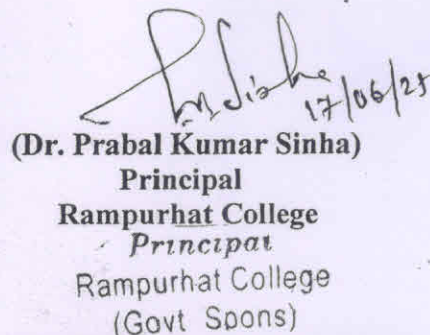 17/06/25
(Dr. Prabal Kumar Sinha)
Principal
Rampurhat College
Principal
Rampurhat College
(Govt Spons)